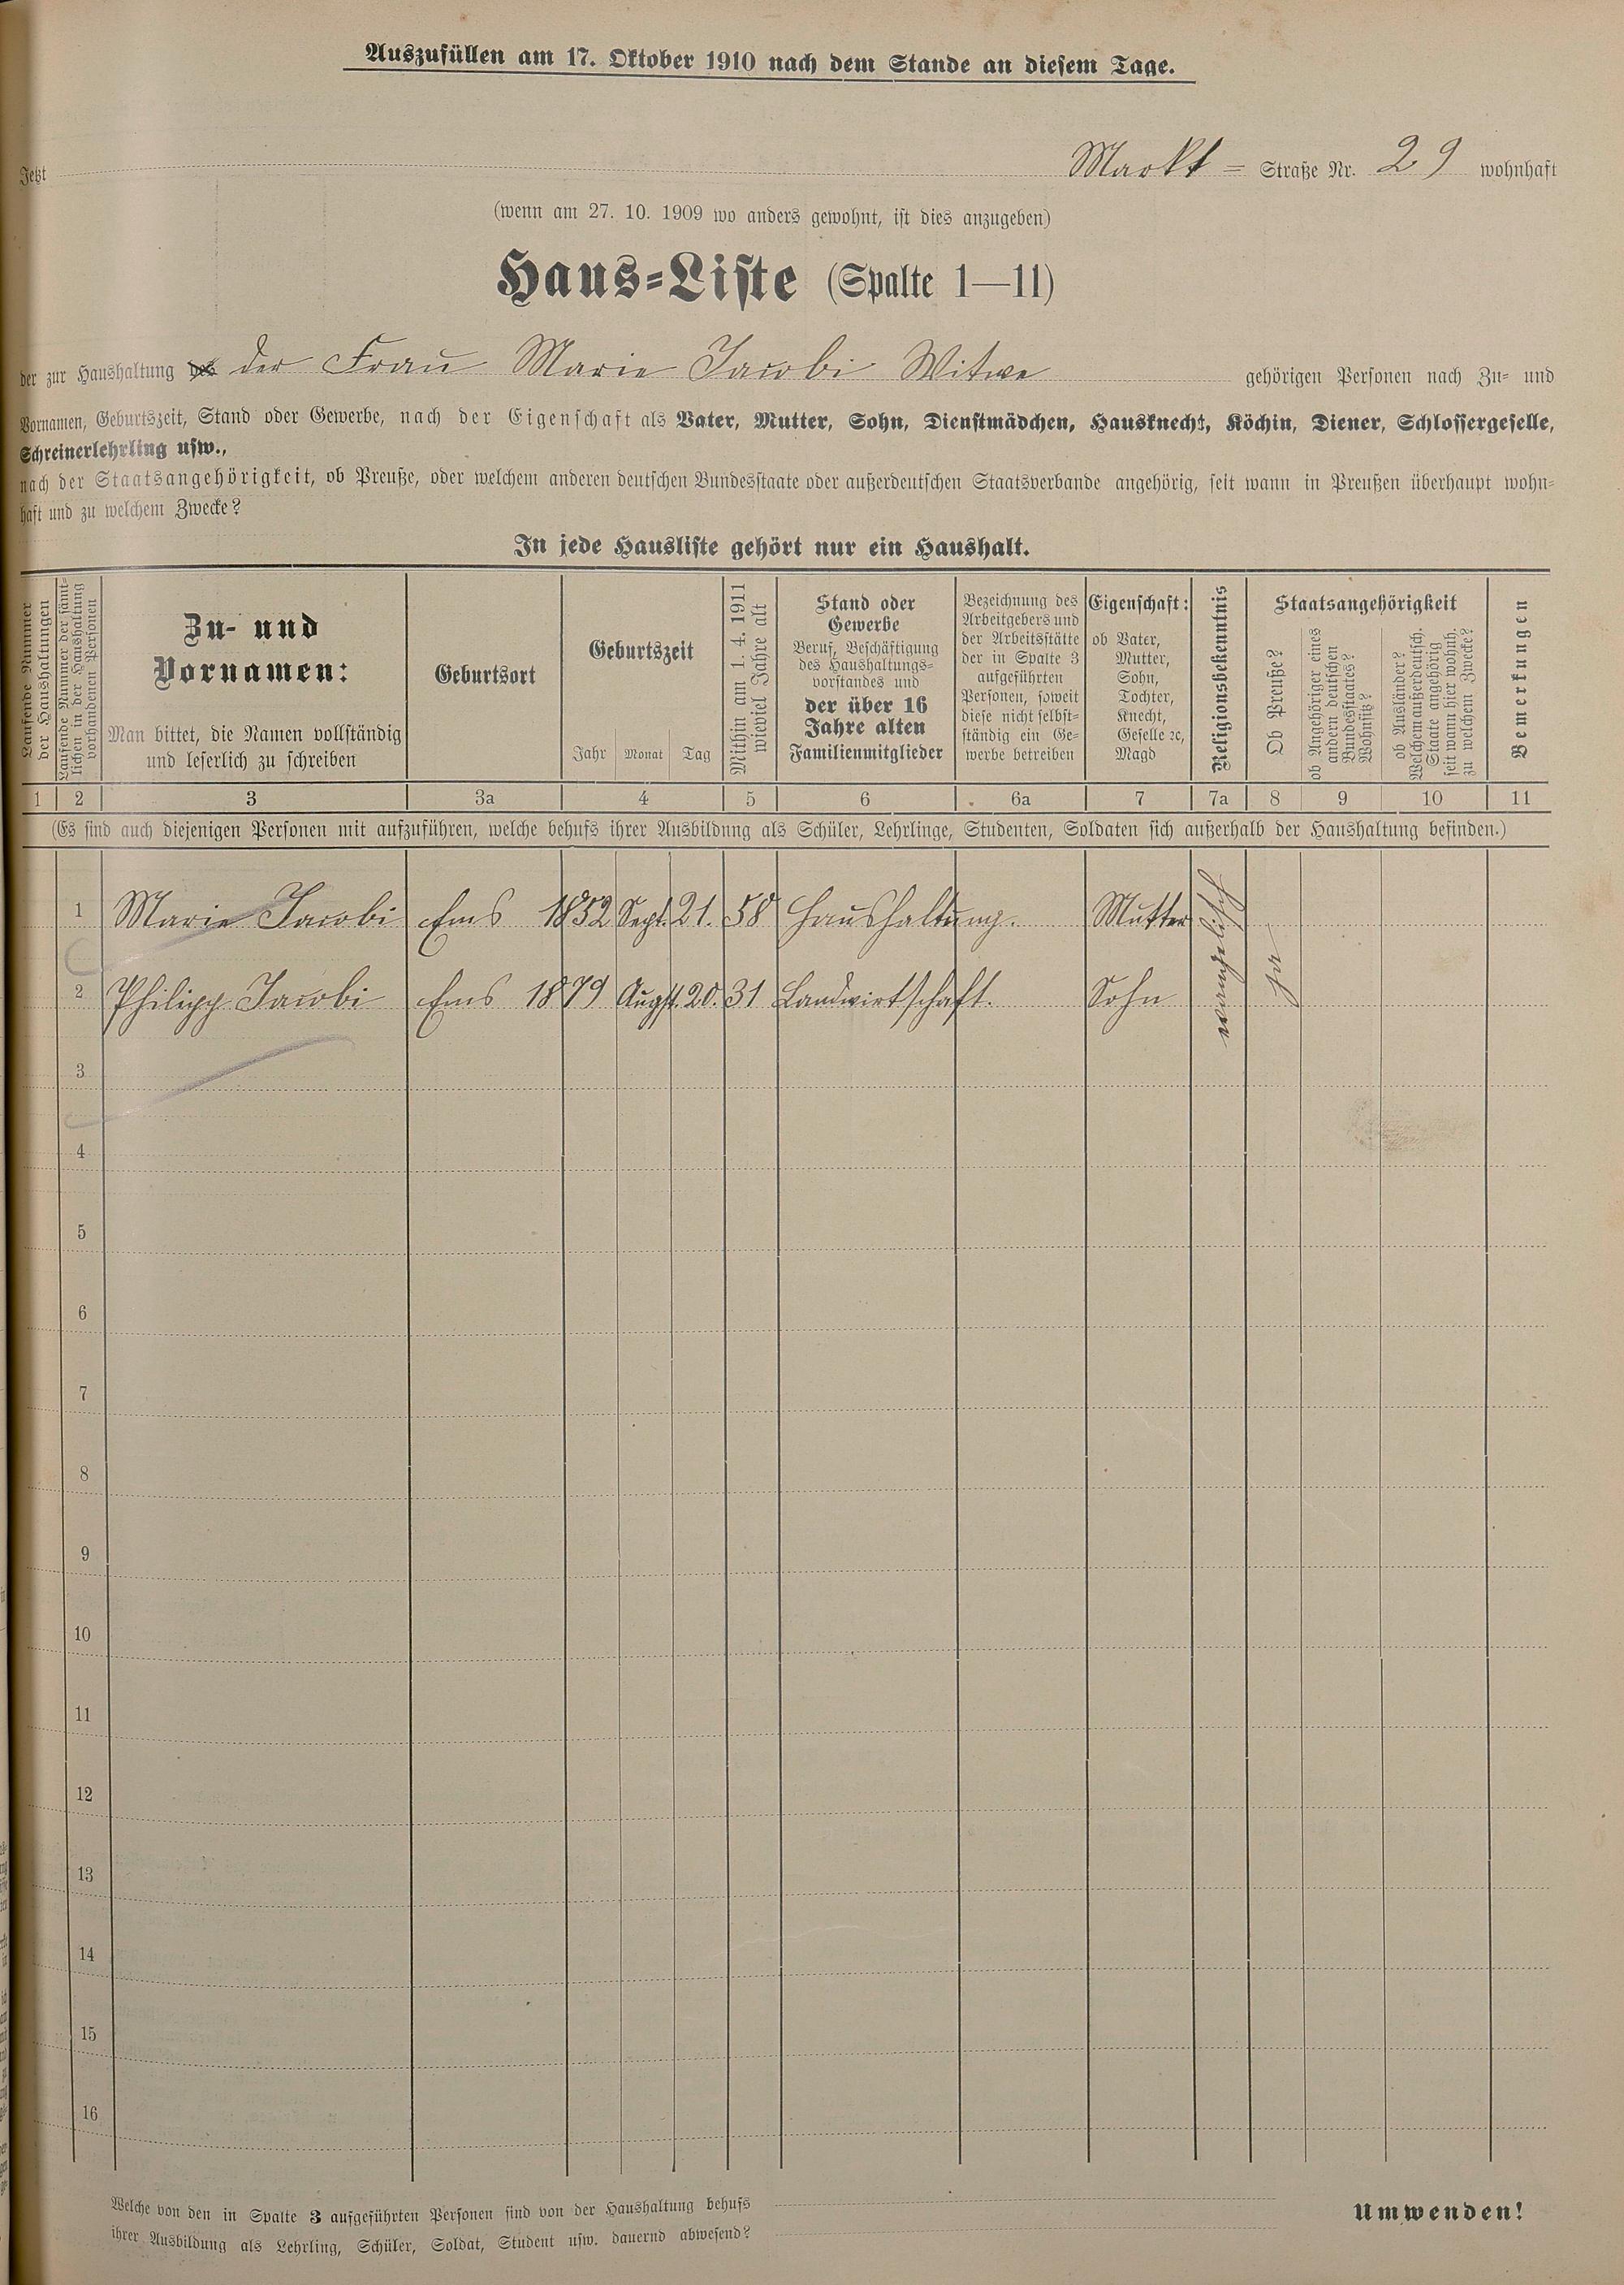 Auszufüllen am 17. Oktober 1910 nach dem Stande an diesem Tage.
Jetzt Markt = Straße Nr. 29 wohnhaft
(wenn am 27. 10. 1909 wo anders gewohnt, ist dies anzugeben)
Haus-Liste (Spalte 1—11)
der zur Haushaltung des der Frau Marie Jacobi Witwe gehörigen Personen nach Zu- und
Vornamen, Geburtszeit, Stand oder Gewerbe, nach der Eigenschaft als Vater, Mutter, Sohn, Dienstmädchen, Hausknecht, Köchin, Diener, Schlossergeselle,
Schreinerlehrling usw.,
nach der Staatsangehörigkeit, ob Preuße, oder welchem anderen deutschen Bundesstaate oder außerdeutschen Staatsverbande angehörig, seit wann in Preußen überhaupt wohn-
haft und zu welchem Zwecke?
In jede Hausliste gehört nur ein Haushalt.
Laufende Nummer
der Haushaltungen
Laufende Nummer der sämt-
lichen in der Haushaltung
vorhandenen Personen
Zu- und
Vornamen:
Man bittet, die Namen vollständig
und leserlich zu schreiben
Geburtsort
Geburtszeit
Jahr Monat Tag
Mithin am 1. 4. 1911
wieviel Jahre alt
Stand oder
Gewerbe
Beruf, Beschäftigung
des Haushaltungs-
vorstandes und
der über 16
Jahre alten
Familienmitglieder
Bezeichnung des
Arbeitgebers und
der Arbeitsstätte
der in Spalte 3
aufgeführten
Personen, soweit
diese nicht selbst-
ständig ein Ge-
werbe betreiben
Eigenschaft:
ob Vater,
Mutter,
Sohn,
Tochter,
Knecht,
Geselle ꝛc,
Magd
Religionsbekenntnis
Staatsangehörigkeit
Ob Preuße?
ob Angehöriger eines
andern deutschen
Bundesstaates?
Wohnsitz?
ob Ausländer?
Welchem außerdeutsch.
Staate angehörig
seit wann hier wohnh.
zu welchem Zwecke?
Bemerkungen
1 2 3 3a 4 5 6 6a 7 7a 8 9 10 11
(Es sind auch diejenigen Personen mit aufzuführen, welche behufs ihrer Ausbildung als Schüler, Lehrlinge, Studenten, Soldaten sich außerhalb der Haushaltung befinden.)
1 Marie Jacobi Ems 1852 Sept. 21. 58 Haushaltung. Mutter
2 Philipp Jacobi Ems 1879 Augst. 20. 31 Landwirtschaft. Sohn
evangelisch
ja
3
4
5
6
7
8
9
10
11
12
13
14
15
16
Welche von den in Spalte 3 aufgeführten Personen sind von der Haushaltung behufs
ihrer Ausbildung als Lehrling, Schüler, Soldat, Student usw. dauernd abwesend?
Umwenden!